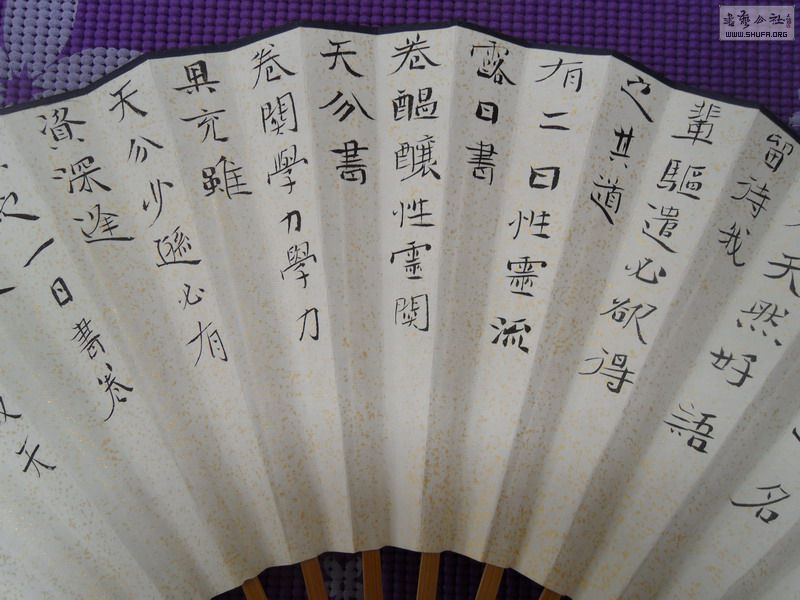 名
天然好語
留待我
輩驅遣必欲得
之其道
有二曰性靈流
露曰書
卷醞釀性靈關
天分書
卷關學力學力
果充雖
天分少遜必有
資深逢
一曰書卷
天
書藝公社
WWW.SHUFA.ORG